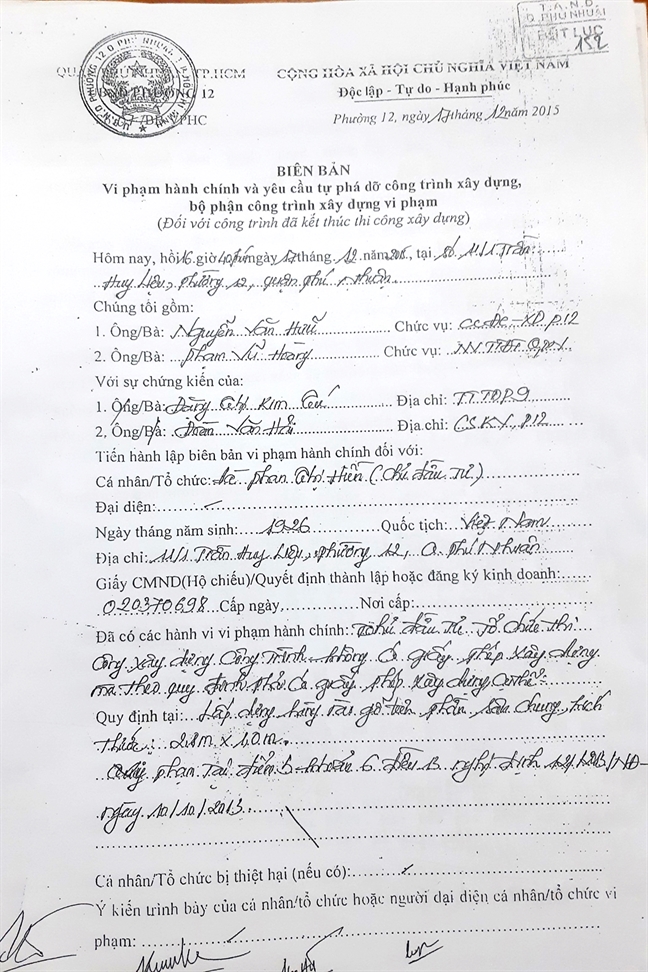 T.A.N.D
Q.PHÚ NHUẬN
BÚT LỤC
152
TP.HCM
CỘNG HÒA XÃ HỘI CHỦ NGHĨA VIỆT NAM
PHƯỜNG 12
Độc lập - Tự do - Hạnh phúc
Phường 12, ngày 17 tháng 12 năm 2015
BIÊN BẢN
Vi phạm hành chính và yêu cầu tự phá dỡ công trình xây dựng,
bộ phận công trình xây dựng vi phạm
(Đối với công trình đã kết thúc thi công xây dựng)
Hôm nay, hồi 16 giờ 40 phút ngày 17 tháng 12 năm 2015, tại số 111/1 Trần
Huy Liệu, phường 12, quận phú nhuận
Chúng tôi gồm:
1. Ông/Bà: Nguyễn Văn Hữu Chức vụ: P.12
2. Ông/Bà: Phạm Vũ Hoàng Chức vụ:
Với sự chứng kiến của:
1. Ông/Bà: Đặng Thị Kim Địa chỉ: TTTDP.9
2, Ông/Bà: Văn Hải Địa chỉ: CSKV, P.12
Tiến hành lập biên bản vi phạm hành chính đối với:
Cá nhân/Tổ chức: Bà Phan Thị Hiền (Chủ Đầu Tư)
Đại diện:
Ngày tháng năm sinh: 1926 Quốc tịch: Việt Nam
Địa chỉ: 111/1 Trần Huy Liệu, phường 12, Q. Phú Nhuận
Giấy CMND(Hộ chiếu)/Quyết định thành lập hoặc đăng ký kinh doanh:
020370698 Cấp ngày, Nơi cấp:
Đã có các hành vi vi phạm hành chính: Chủ đầu tư tổ chức thi
công xây dựng công trình không có giấy phép xây dựng
mà theo quy định phải có giấy phép xây dựng cụ thể:
Quy định tại: Lắp dựng hàng rào gỗ trên phần sân chung, kích
thước: 2.8m x 1.0m.
phạm tại điểm b khoản 6 điều 13 nghị định 121/2013/NĐ-
ngày 10/10/2013
Cá nhân/Tổ chức bị thiệt hại (nếu có):
Ý kiến trình bày của cá nhân/tổ chức hoặc người dại diện cá nhân/tổ chức vi
phạm: